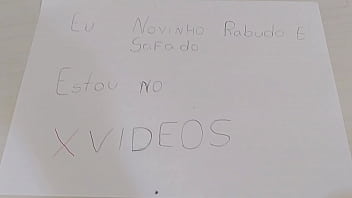 Eu Novinho Rabudo E
Safado
Estou no
XVIDEOS